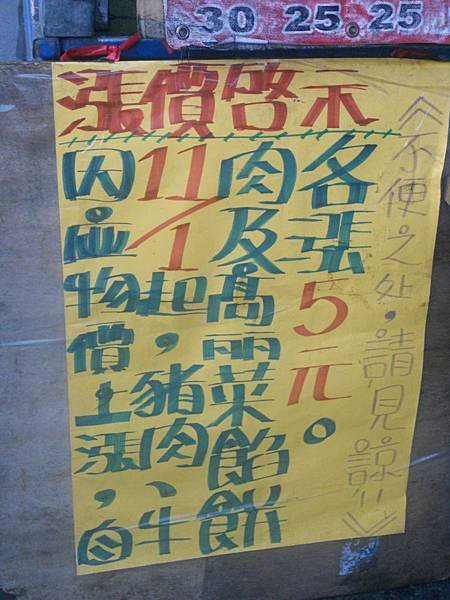 30 25.25
漲價啓示
因应物價上漲，自
11/1起，豬肉、牛
肉及高丽菜餡餅
各漲5元。
《不便之处，請見諒!!》